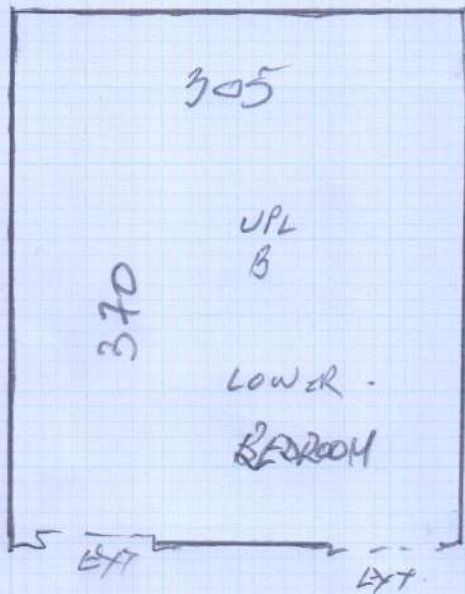 305
UPL
B
370
LOWER.
BEDROOM
EXT
EXT